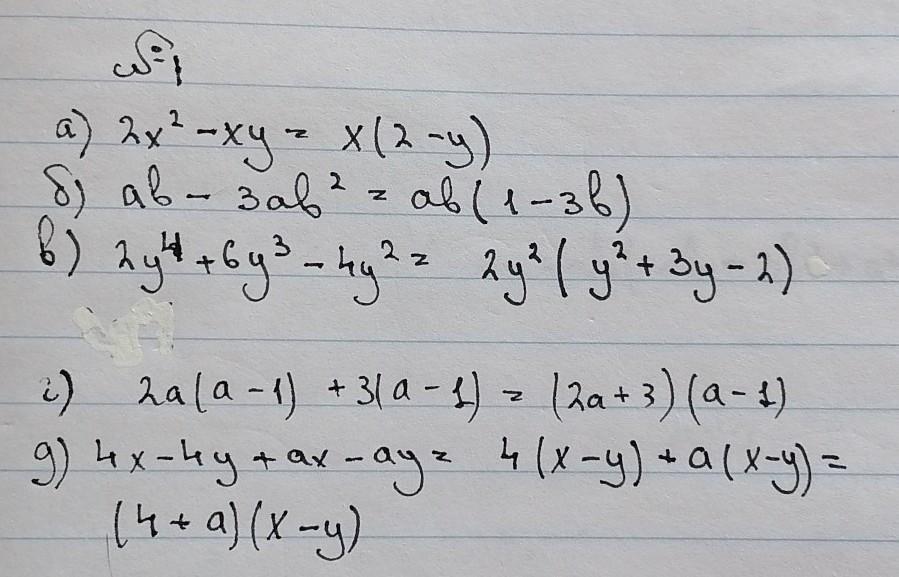 №1
а) 2x² - xy = x(2 - y)
б) ab - 3ab² = ab(1 - 3b)
в) 2y⁴ + 6y³ - 4y² = 2y²(y² + 3y - 2)
г) 2a(a - 1) + 3(a - 1) = (2a + 3)(a - 1)
д) 4x - 4y + ax - ay = 4(x - y) + a(x - y) =
(4 + a)(x - y)